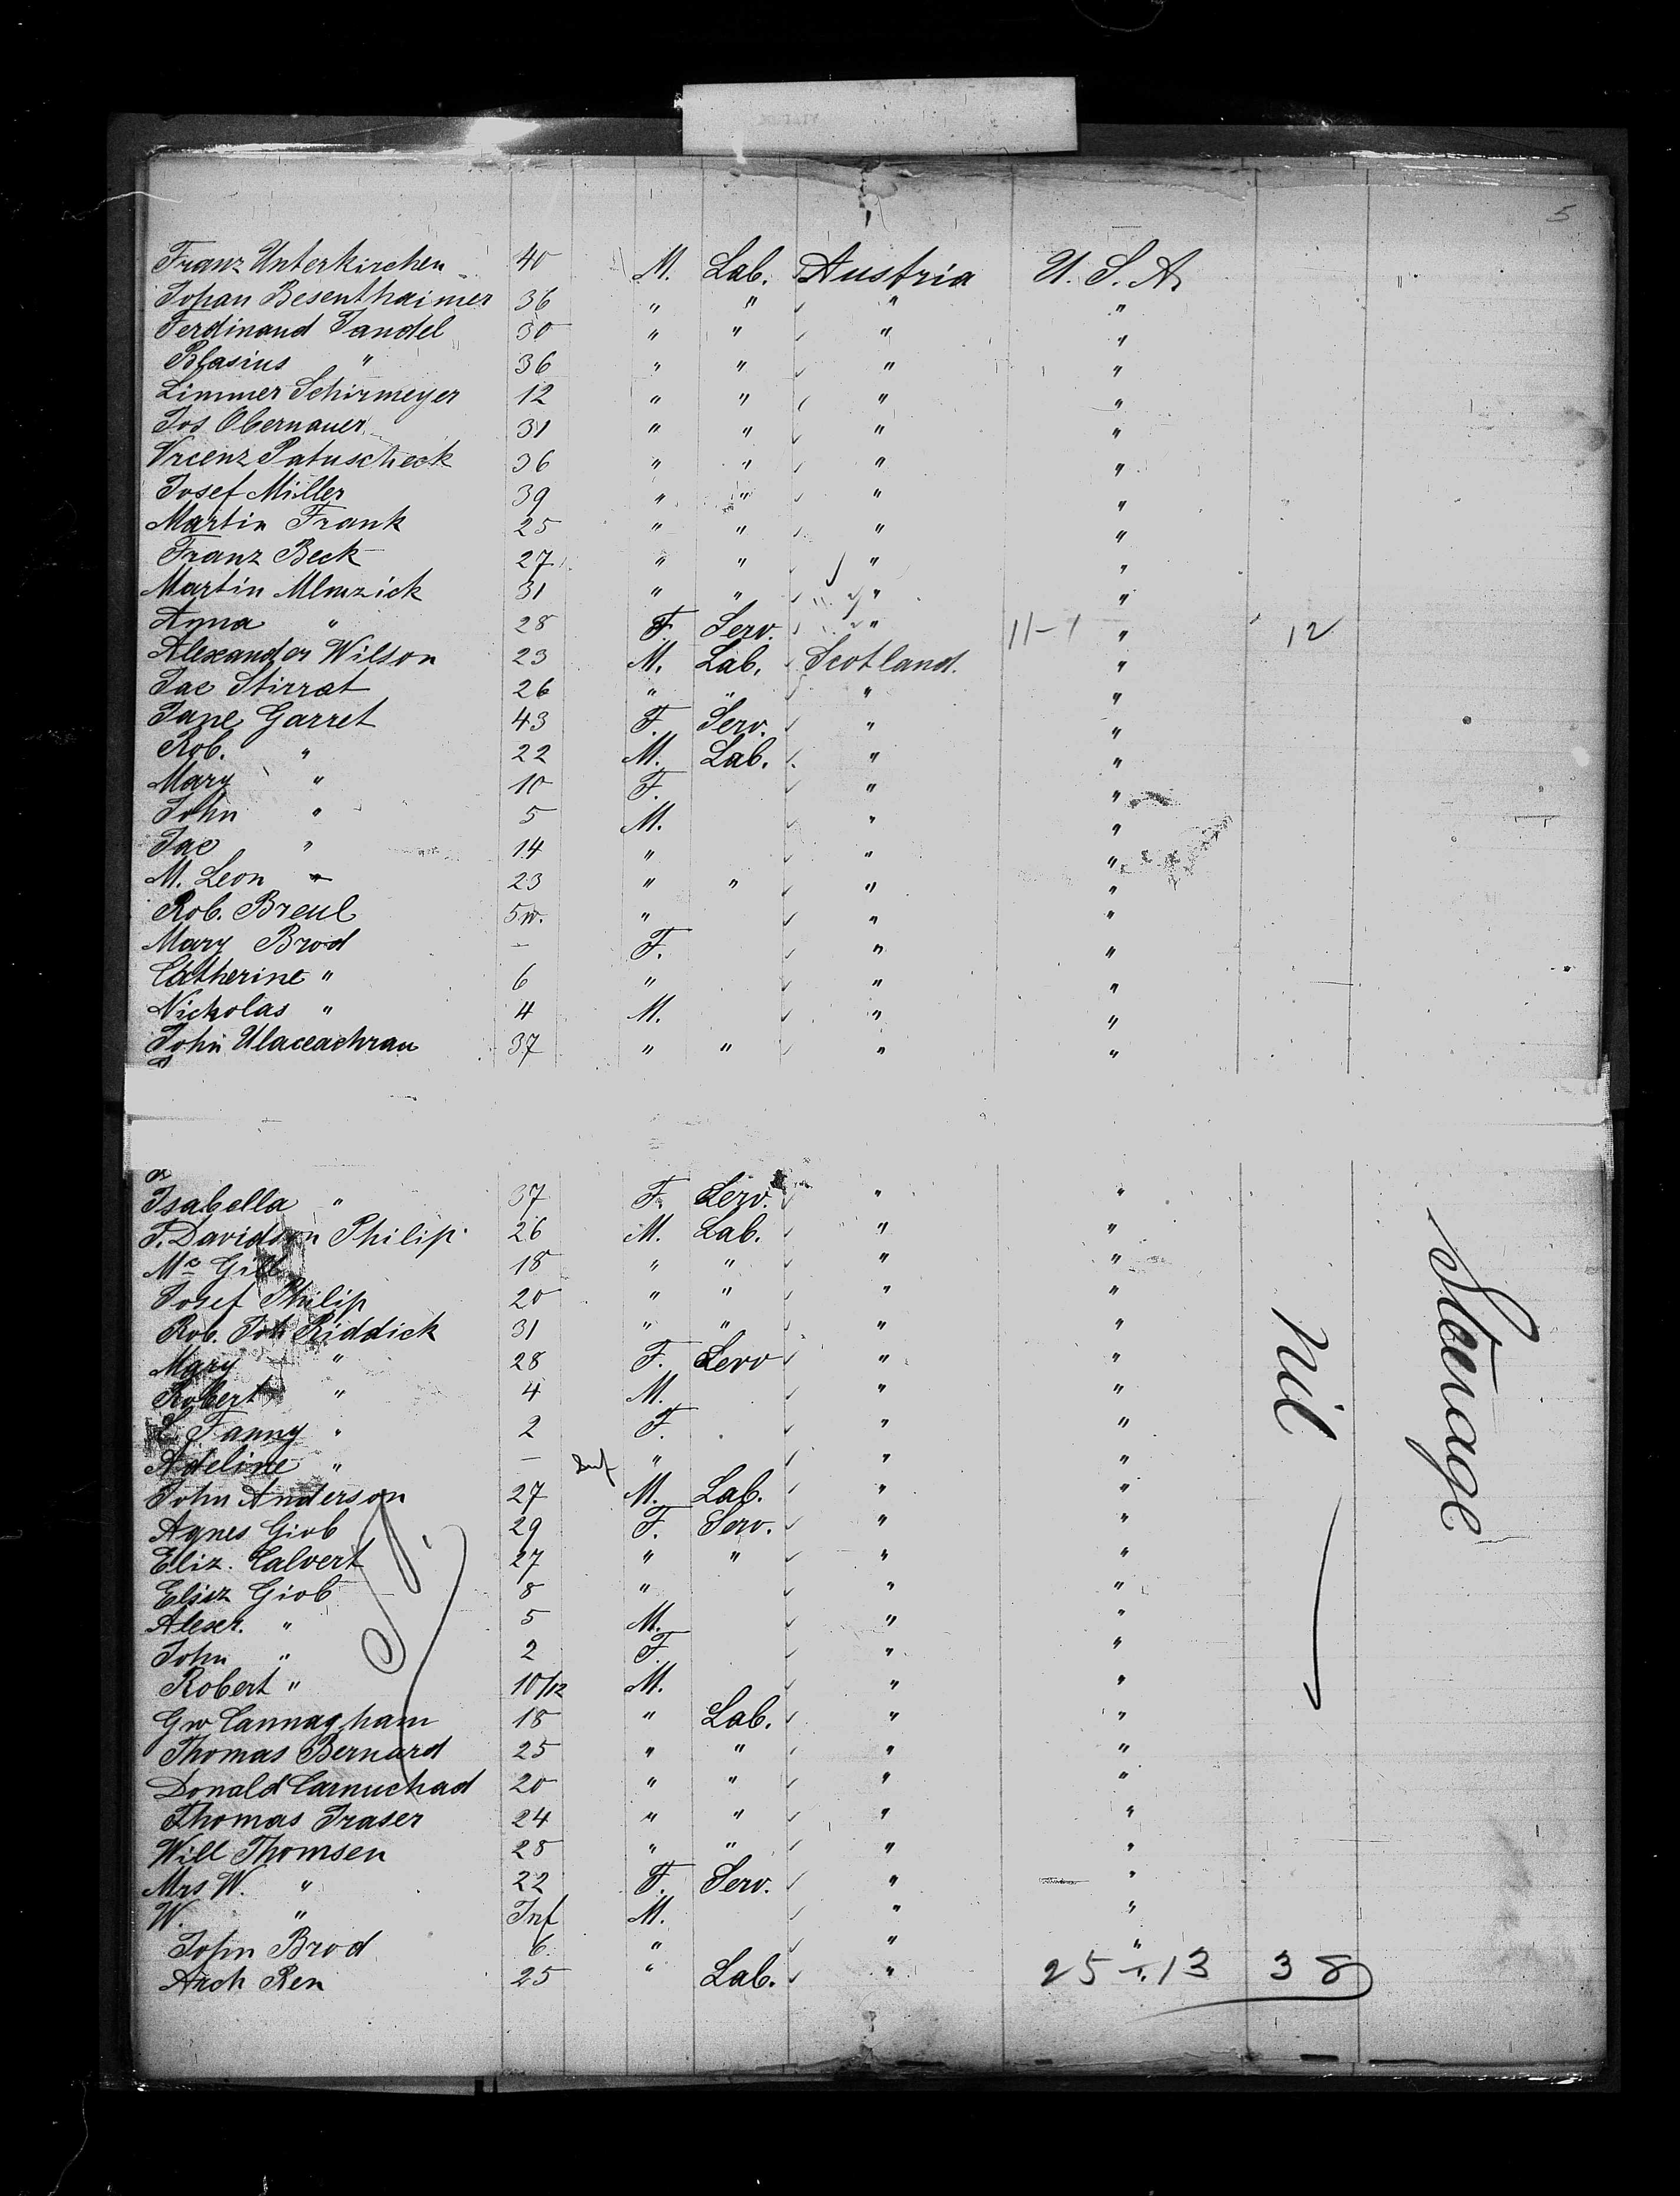 5
Franz Unterkirchen 40 M. Lab. Austria U. S. A.
Johan Besenthaimer 36 " " " "
Ferdinand Jandel 30 " " " "
Blasius " 36 " " " "
Limmer Schirmeyer 12 " " " "
Jos Obernauer 31 " " " "
Vrcenz Patuscheck 36 " " " "
Josef Miller 39 " " " "
Martin Frank 25 " " " "
Franz Beck 27 " " " "
Martin 31 " " " "
Anna " 28 F. Serv. " 11-1 " 12
Alexander Wilson 23 M. Lab. Scotland. "
Jac Stirrat 26 " " " "
Jane Garret 43 F. Serv. " "
Rob. " 22 M. Lab. " "
Mary " 10 F. " "
John " 5 M. " "
Jac " 14 " " "
M. Leon 23 " " " "
Rob. Breul 5 " " "
Mary Brod – F. " "
Catherine " 6 " " "
Nickolas " 4 M. " "
John Ulaceachrau 37 " " " "
Isabella " 37 F. Serv. " "
T. Davidson Philip 26 M. Lab. " "
Mc Gill 18 " " " "
Josef Philip 20 " " " "
Rob. Joh Riddick 31 " " " "
Mary " 28 F. Serv " "
Robert " 4 M. " "
L. Fanny " 2 F. " "
Adeline " – Inf " " "
John Anderson 27 M. Lab. " "
Agnes Giob 29 F. Serv. " "
Eliz. Calvert 27 " " " "
Elsiz Giob 8 " " "
Alexer. " 5 M. " "
John " 2 F. " "
Robert " 10/12 M. " "
Gw Cannagham 18 " Lab. " "
Thomas Bernard 25 " " " "
Donald Carnuchad 20 " " " "
Thomas Fraser 24 " " " "
Will Thomsen 28 " " " "
Mrs W. " 22 F. Serv. " "
W. " Inf M. " "
John Brod 6. " " "
Arch Ren 25 " Lab. " 25 - 13 38
nil
Steerage